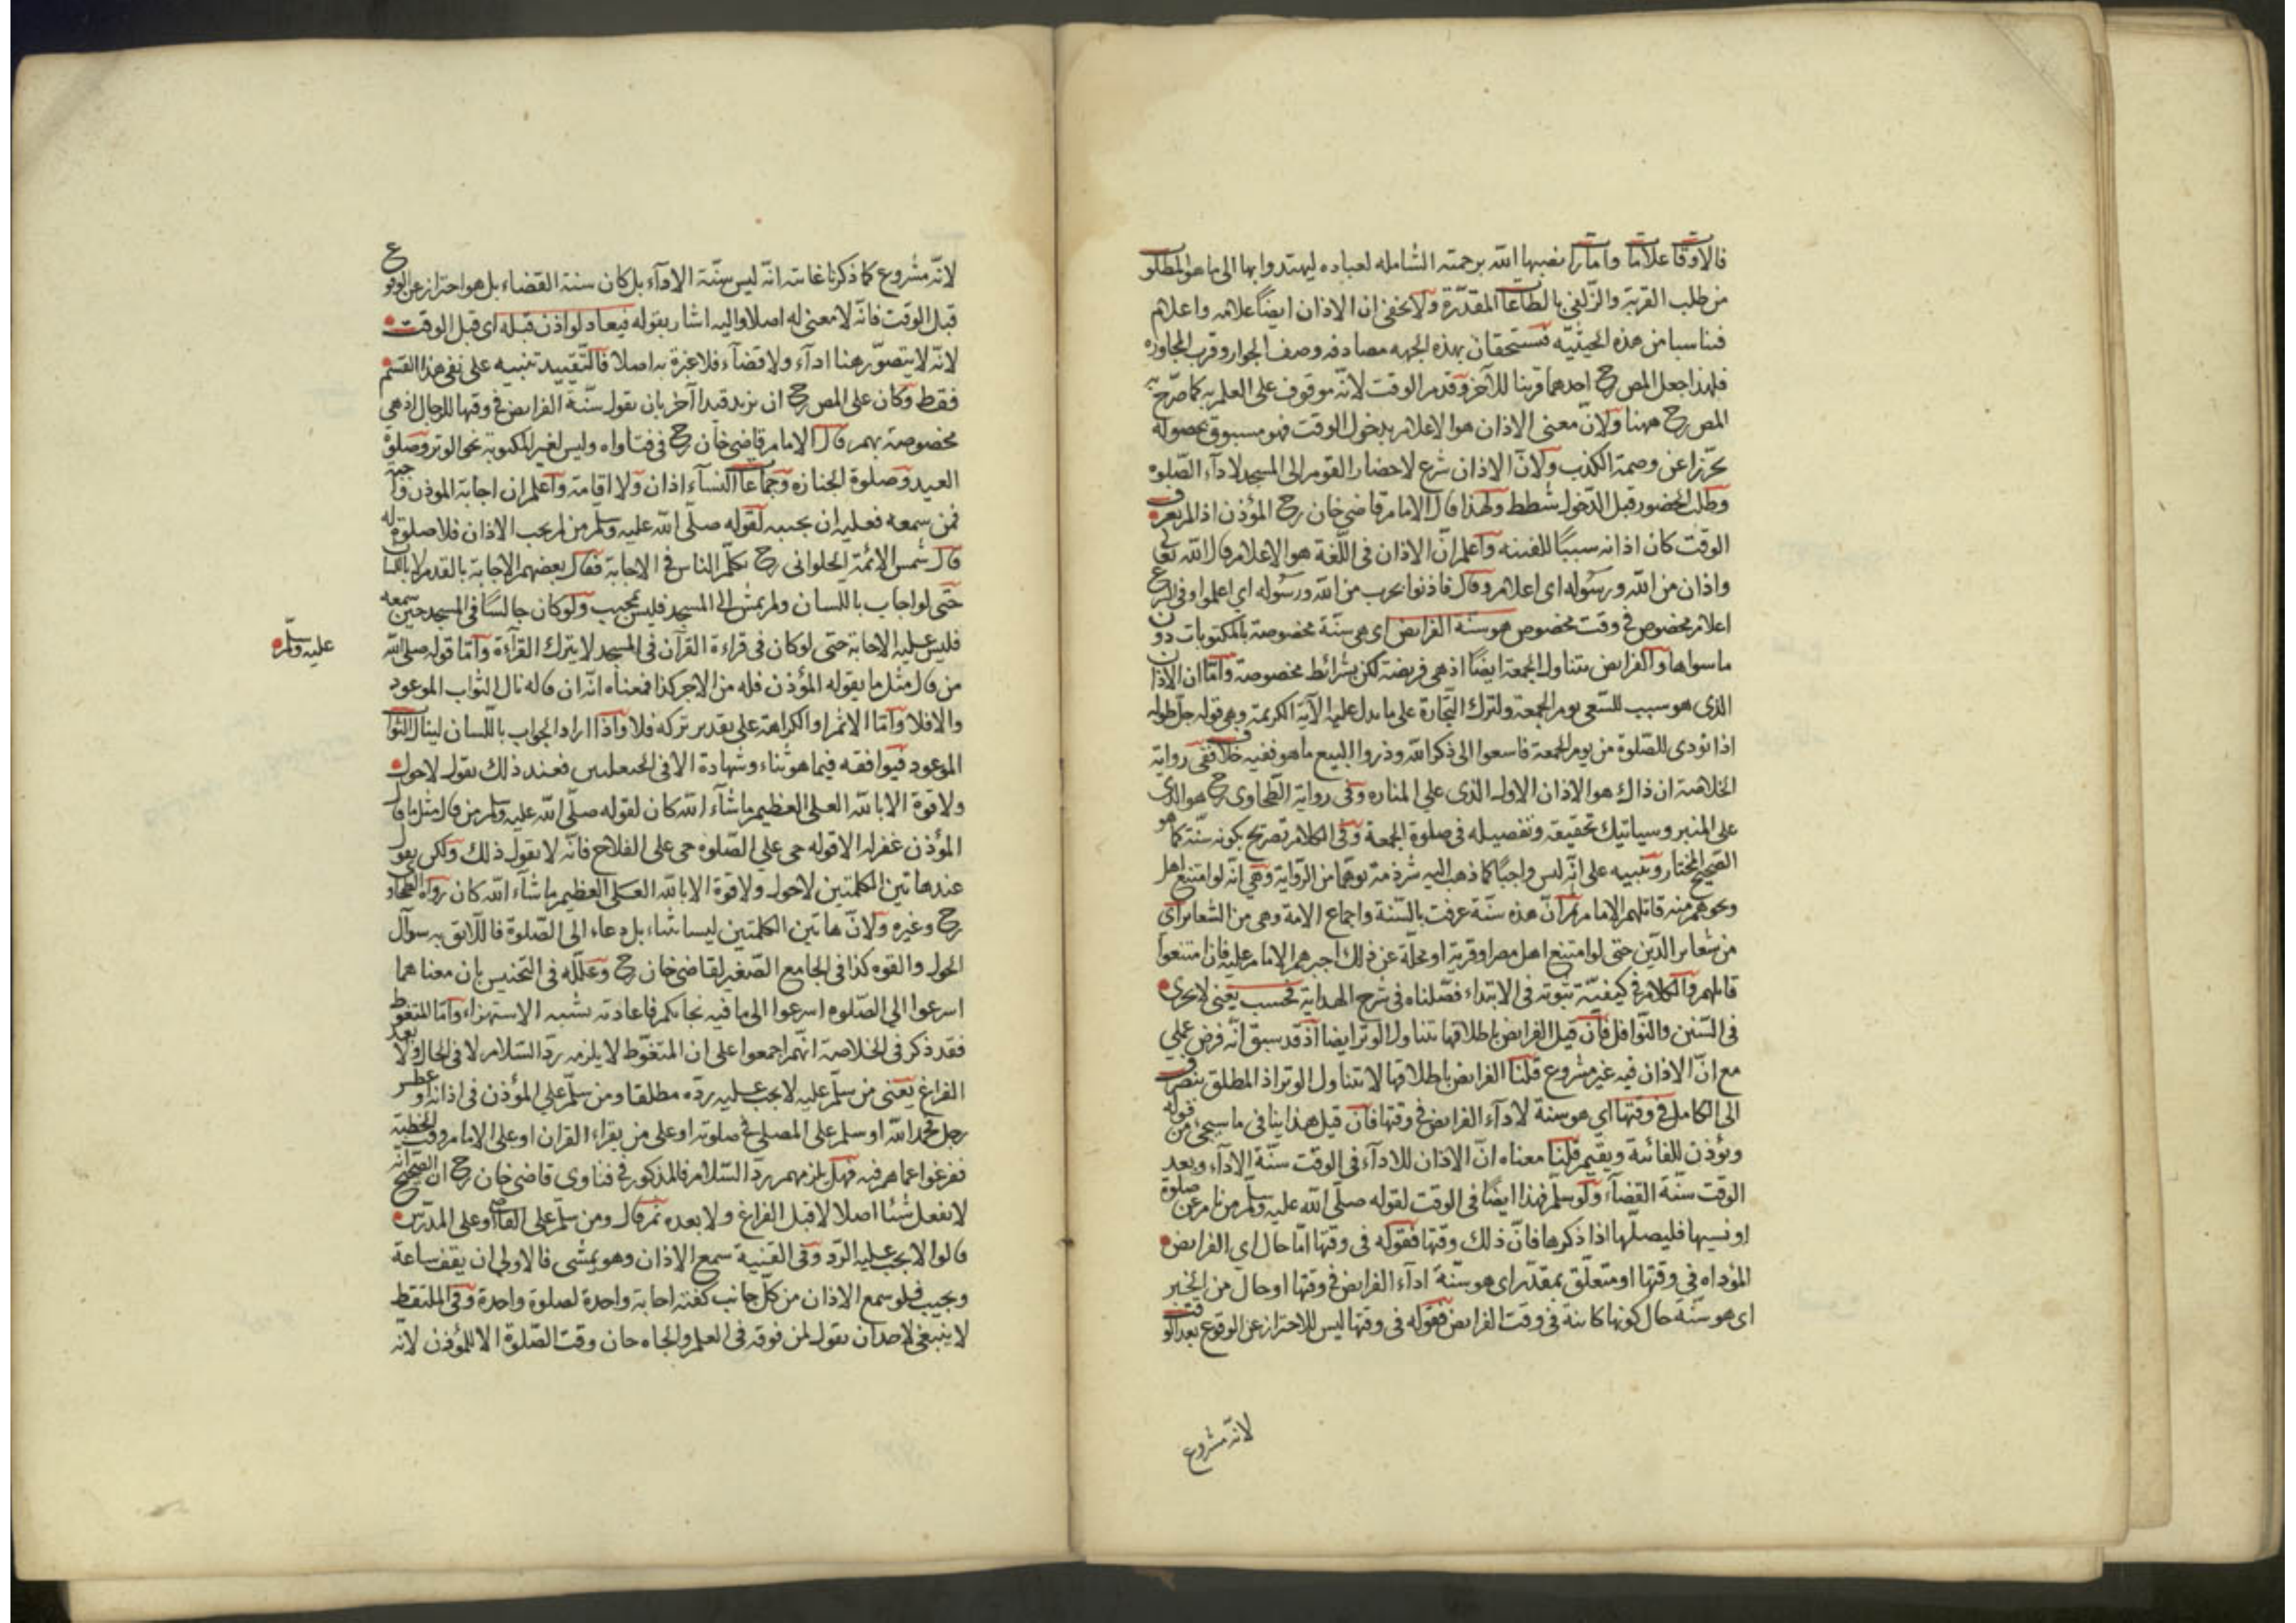 فالاوقات علامات وامارات نصبها الله برحمته الشامله لعباده ليهتدوا بها الى ما هو المطلوب
من طلب القربة والزلفى بالطاعات المقدرة ولا يخفى ان الاذان ايضا علامه واعلام
فتناسبا من هذه الحيثيه فتستحقان بهذه الجهه مصادفه وصف الجوار وقرب المجاوره
فلهذا جعل المص رح احدهما قرينا للآخر وقدم الوقت لانه موقوف على العلم به كما صرح به
المص رح ههنا ولان معنى الاذان هو الاعلام بدخول الوقت فهو مسبوق بحصوله
تحرزا عن وصمة الكذب ولان الاذان شرع لاحضار القوم الى المسجد لادآء الصلوه
وطلب الحضور قبل الدخول شطط ولهذا قال الامام قاضى خان رح المؤذن اذا لم يعرف
الوقت كان اذانه سببا للفتنه واعلم ان الاذان فى اللغة هو الاعلام قال الله تعالى
واذان من الله ورسوله اى اعلام وقال فاذنوا بحرب من الله ورسوله اى اعلموا وفى الشرع
اعلام مخصوص فى وقت مخصوص هو سنة الفرايض اى هى سنة مخصوصة بالمكتوبات دون
ما سواها والفرايض يتناول الجمعة ايضا اذ هى فريضة لكن بشرائط مخصوصة واما ان الاذان
الذى هو سبب للسعى يوم الجمعة ولترك التجارة على ما يدل عليه الآية الكريمة وهى قوله جل طوله
اذا نودى للصلوة من يوم الجمعة فاسعوا الى ذكر الله وذروا البيع ما هو ففيه خلاف ففى رواية
الخلاصة ان ذاك هو الاذان الاول الذى على المناره وفى رواية الطحاوى رح هو الذى
على المنبر وسياتيك تحقيقه وتفصيله فى صلوة الجمعة وفى الكلام تصريح بكونه سنة كما هو
الصحيح المختار وتنبيه على انه ليس واجبا كما ذهب اليه شرذمة توهما من الرواية وهى انه لو امتنع اهل
ونحوهم منه قاتلهم الامام ثم ان هذه سنة عرفت بالسنة واجماع الامة وهى من الشعاير اى
من شعاير الدين حتى لو امتنع اهل مصر او قرية او محلة عن ذلك اجبرهم الامام عليه فان امتنعوا
قاتلهم والكلام فى كيفية ثبوته فى الابتداء فصلناه فى شرح الهداية فحسب يعنى لا يجرى
فى السنن والنوافل فان قيل الفرايض باطلاقها يتناول الوتر ايضا اذ قد سبق انه فرض عملى
مع ان الاذان فيه غير مشروع قلنا الفرايض باطلاقها لا يتناول الوتر اذ المطلق ينصرف
الى الكامل فى وقتها اى هو سنة لادآء الفرايض فى وقتها فان قيل هذا ينافى ما سيجئ من قوله
ويؤذن للفائتة ويقيم قلنا معناه ان الاذان للادآء فى الوقت سنة الادآء وبعد
الوقت سنة القضآء ولو سلم فهذا ايضا فى الوقت لقوله صلى الله عليه وسلم من نام عن صلوة
او نسيها فليصلها اذا ذكرها فان ذلك وقتها فقوله فى وقتها اما حال اى الفرايض
المؤداه فى وقتها او متعلق بمقدر اى هو سنة ادآء الفرايض فى وقتها او حال من الخبر
اى هو سنة حال كونها كاينة فى وقت الفرايض فقوله فى وقتها ليس للاحتراز عن الوقوع بعد الوقت
لانه مشروع
لانه مشروع كما ذكرنا غايته انه ليس سنة الادآء بل كان سنة القضاء بل هو احتراز عن الوقوع
قبل الوقت فانه لا معنى له اصلا واليه اشار بقوله فيعاد لو اذن قبله اى قبل الوقت
لانه لا يتصور هنا ادآء ولا قضآء فلا عبرة به اصلا فالتقييد تنبيه على نفى هذا القسم
فقط وكان على المص رح ان يزيد قيدا آخر بان يقول سنة الفرايض فى وقتها للرجال اذ هى
مخصوصة بهم قال الامام قاضى خان رح فى فتاواه وليس لغير المكتوبة نحو الوتر وصلوة
العيد وصلوة الجنازه وجماعات النسآء اذان ولا اقامة واعلم ان اجابة الموذن واجبة
فمن سمعه فعليه ان يجيبه لقوله صلى الله عليه وسلم من لم يجب الاذان فلا صلوة له
قال شمس الائمة الحلوانى رح تكلم الناس فى الاجابة فقال بعضهم الاجابة بالقدم لا باللسان
حتى لو اجاب باللسان ولم يمش الى المسجد فليس بمجيب ولو كان جالسا فى المسجد حين سمعه
فليس عليه الاجابة حتى لو كان فى قراءة القرآن فى المسجد لا يترك القرآءة واما قوله صلى الله
عليه وسلم
من قال مثل ما يقوله المؤذن فله من الاجر كذا فمعناه انه ان قاله نال الثواب الموعود
والا فلا واما الاثم او الكراهة على تقدير تركه فلا واذا اراد الجواب باللسان لينال الثواب
الموعود فيوافقه فيما هو ثناء وشهادة الا فى الحيعلتين فعند ذلك يقول لا حول
ولا قوة الا بالله العلى العظيم ما شآء الله كان لقوله صلى الله عليه وسلم من قال مثل ما قال
المؤذن غفر له الا قوله حى على الصلوه حى على الفلاح فانه لا يقول ذلك ولكن يقول
عند هاتين الكلمتين لا حول ولا قوة الا بالله العلى العظيم ما شآء الله كان رواه الطحاوى
رح وغيره ولان هاتين الكلمتين ليسا ثناء بل دعاء الى الصلوة فاللائق به سوآل
الحول والقوه كذا فى الجامع الصغير لقاضى خان رح وعلله فى التجنيس بان معناهما
اسرعوا الى الصلوه اسرعوا الى ما فيه نجاتكم فاعادته تشبه الاستهزاء واما المتغوط
فقد ذكر فى الخلاصة انهم اجمعوا على ان المتغوط لا يلزمه رد السلام لا فى الحال ولا بعد
الفراغ يعنى من سلم عليه لا يجب عليه رده مطلقا ومن سلم على المؤذن فى اذانه او عطس
رجل فحمد الله او سلم على المصلى فى صلوته او على من يقراء القران او على الامام وقت الخطبة
ففرغوا عما هم فيه فهل يلزمهم رد السلام فالمذكور فى فتاوى قاضى خان رح ان الصحيح انه
لا يفعل شئا اصلا لا قبل الفراغ ولا بعده ثم قال ومن سلم على القاضى او على المدرس
قالوا لا يجب عليه الرد وفى القنية سمع الاذان وهو يمشى فالاولى ان يقف ساعة
ويجيب فلو سمع الاذان من كل جانب كفته اجابة واحدة لصلوة واحدة وفى الملتقط
لا ينبغى لاحد ان يقول لمن فوقه فى العلم والجاه حان وقت الصلوة الا للمؤذن لانه